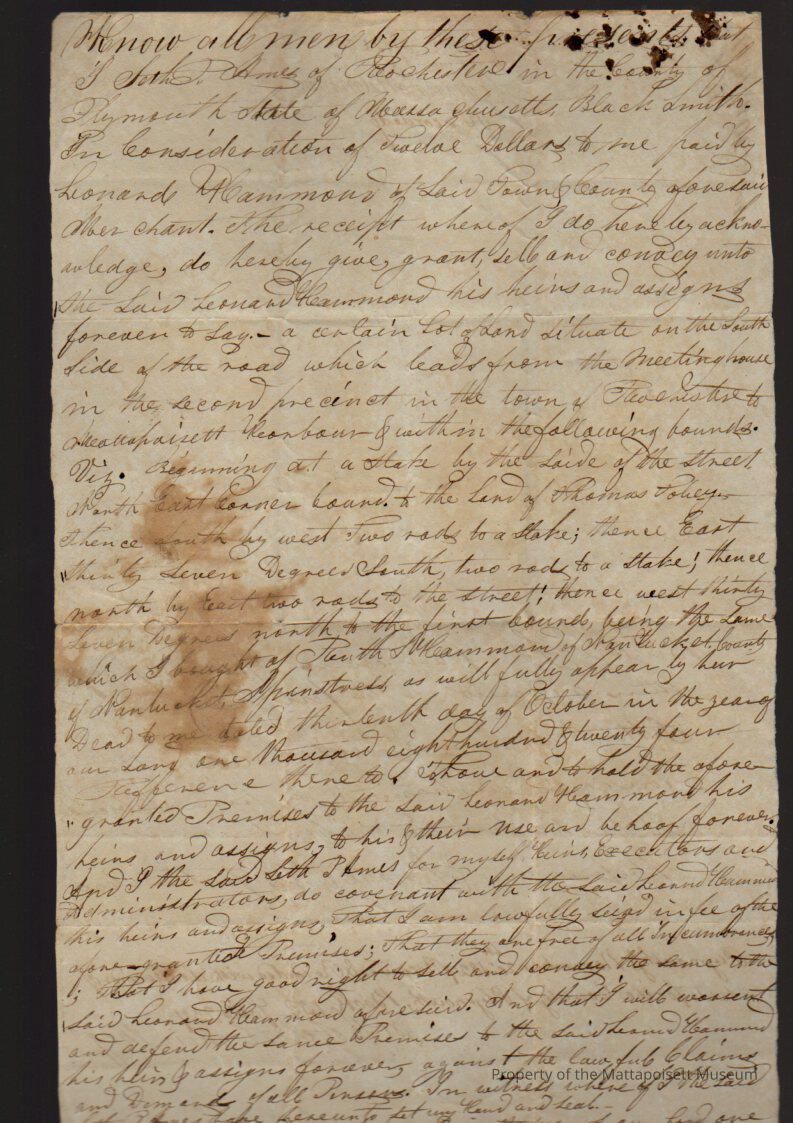 Know all men by these presents, that
I Seth P. Ames of Rochester in the County of
Plymouth State of Massachusetts, Black Smith.
In Consideration of Twelve Dollars to me paid by
Leonard Hammond of Said Town & County aforesaid
Merchant. The receipt whereof I do hereby ackno-
wledge, do hereby give, grant, sell and convey unto
the Said Leonard Hammond his heirs and assigns
forever to say.- a certain lot of land situate on the South
side of the road which leads from the Meeting house
in the second precinct in the town of Rochester to
Mattapoisett Harbour & within the following bounds.
Viz. Beginning at a stake by the side of the street
North East Corner bound. to the land of Thomas Tobey.
Thence South by west Two rods to a stake; thence East
thirty Seven Degrees South, two rods to a stake; thence
north by East two rods to the street; thence west thirty
Seven Degrees north to the first bound, being the same
which I bought of Ruth Hammond of Nantucket County
of Nantucket, Spinstress, as will fully appear by her
Dead to me dated thirteenth day of October in the year of
our Lord one thousand eight hundred & twenty four
Refference there to. To have and to hold the afore-
granted Premises to the said Leonard Hammond his
heirs and assigns, to his & their use and behoof forever.
And I the said Seth P Ames for myself, Heirs, Executors and
Administrators, do covenant with the said Leonard Hammond
his heirs and assigns, That I am lawfully seized in fee of the
afore-granted Premises; That they are free of all Incumbrances
; That I have good right to sell and convey the same to the
said Leonard Hammond aforesaid. And that I will warrent
and defend the same Premises to the said Leonard Hammond
his heirs & assigns forever, against the lawful Claims
Property of the Mattapoisett Museum
and Demands of all Persons. In witness where of I the said
have hereunto set my Hand and seal.-